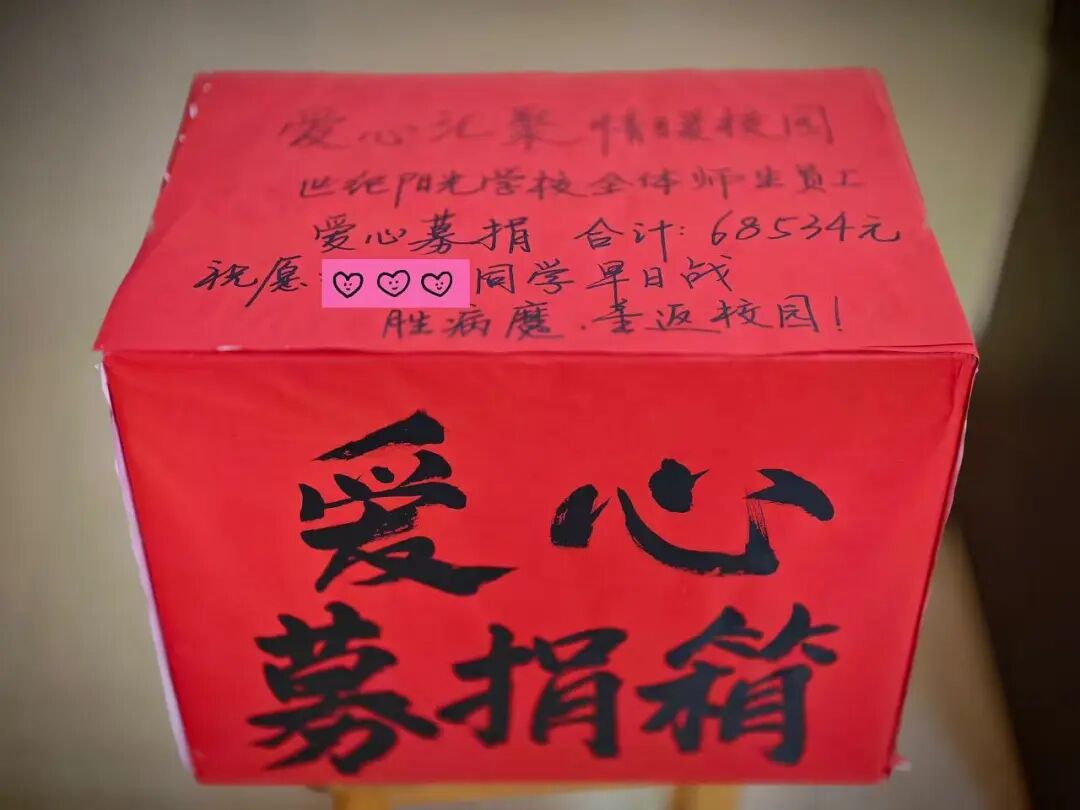 爱心汇聚 情暖校园
世纪阳光学校全体师生员工
爱心募捐 合计：68534元
祝愿：同学早日战
胜病魔．重返校园！
爱心
募捐箱